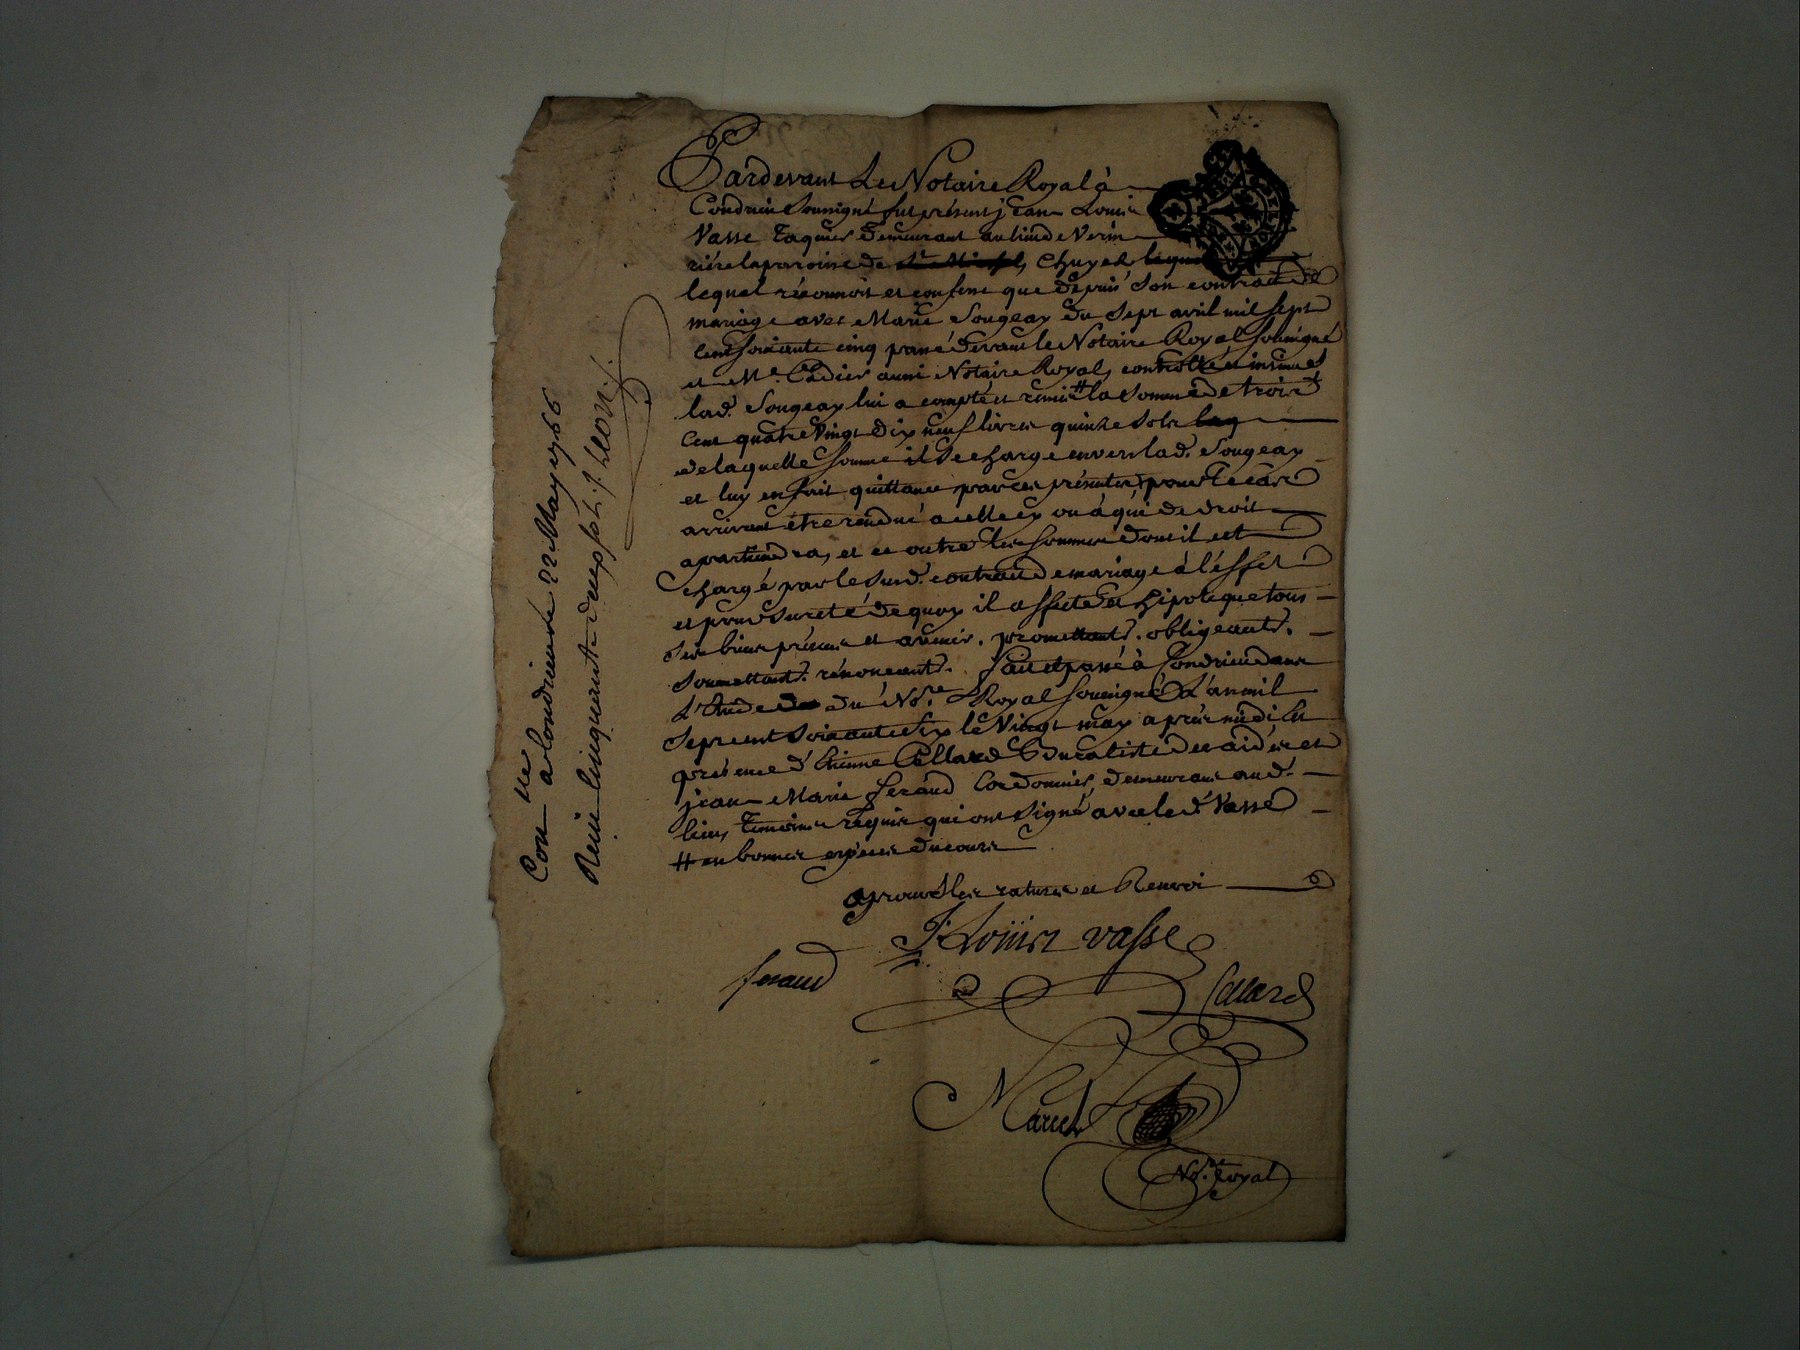 Pardevant Le Notaire Royal à
Condrieu Soussigné fut présent jean Louis
Vasse demeurant au lieu de Verin
paroisse de Chuyes
lequel réconnoit et confesse que depuis Son contrait de
mariage avec Marie Sougeay du Sept avril mil sept
cent soixante cinq passé devant le Notaire Royal soussigné
et Me. Cadier aussi Notaire Royal, controllé et insinué
lad. Sougeay lui a compté et remis # la Somme de trois
cent quatre Vingt dix neuf livres quinze sols
de laquelle somme il Se charge envers lad. Sougeay
et luy en fait quittance par ces présentes pour le cas
arrivant être rendue a celle cy ou à qui de droit
apartiendra, et ce outre les sommes dont il est
chargé par le Susd. contrait de mariage à l'éffet
et pour Sureté de quoy il affecte et hipoteque tous
Ses biens présens et avenir. promettant. obligeant.
Soumettant. rénonceant. fait et passé à Condrieu dans
L'étude du No.re Royal soussigné L'an mil
Sept cent Soixante Six le Vingt may après midi en
présence d'Etienne Cellard des aides et
jean Marie feraud Cordonnier, demeurant aud.
lieu, Temoins requis qui ont Signé avec led. Vasse
# en bonnes espèces du cours
aprouvé les ratures et Renvoi
J Louis vasse
feraud
Cellard
Marcel
No.re Royal
Con lle a Condrieu le 22 May 1766
Reçu cinquante deux sols. J. Leori